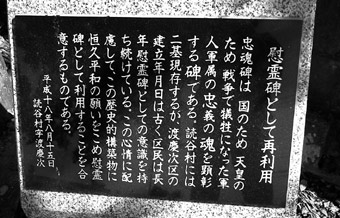 慰霊碑として再利用
忠魂碑は、国のため 天皇の
ため 戦争で犠牲になった軍
人軍属の忠義の魂を顕彰
する碑である。読谷村には
二基現存するが、渡慶次区の
建立年月日は古く区民は長
年慰霊碑としての意識を持
ち続けている。この心情に配
慮して、この歴史的構築物に
恒久平和の願いをこめ慰霊
碑として利用することを合
意するものである。
平成十八年八月十五日
読谷村字渡慶次